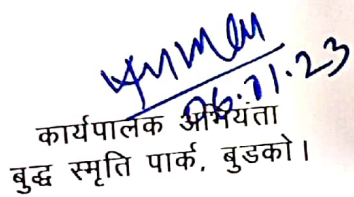 06.01.23
कार्यपालक अभियंता
बुद्ध स्मृति पार्क, बुडको।